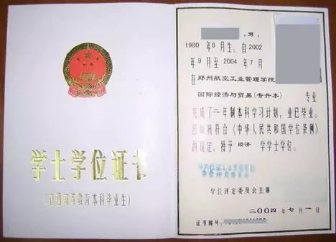 学士学位证书
(普通高等教育本科毕业生)
,男,
1980 年 8 月生。自 2002
年 9 月至 2004 年 7 月
在 郑州航空工业管理学院
国际经济与贸易(专升本) 专业
完成了二年制本科学习计划,业已毕业。
经审核符合《中华人民共和国学位条例》
的规定,授予 经济 学学士学位。
学位评定委员会主席
证书编号:
二00四年七月一日